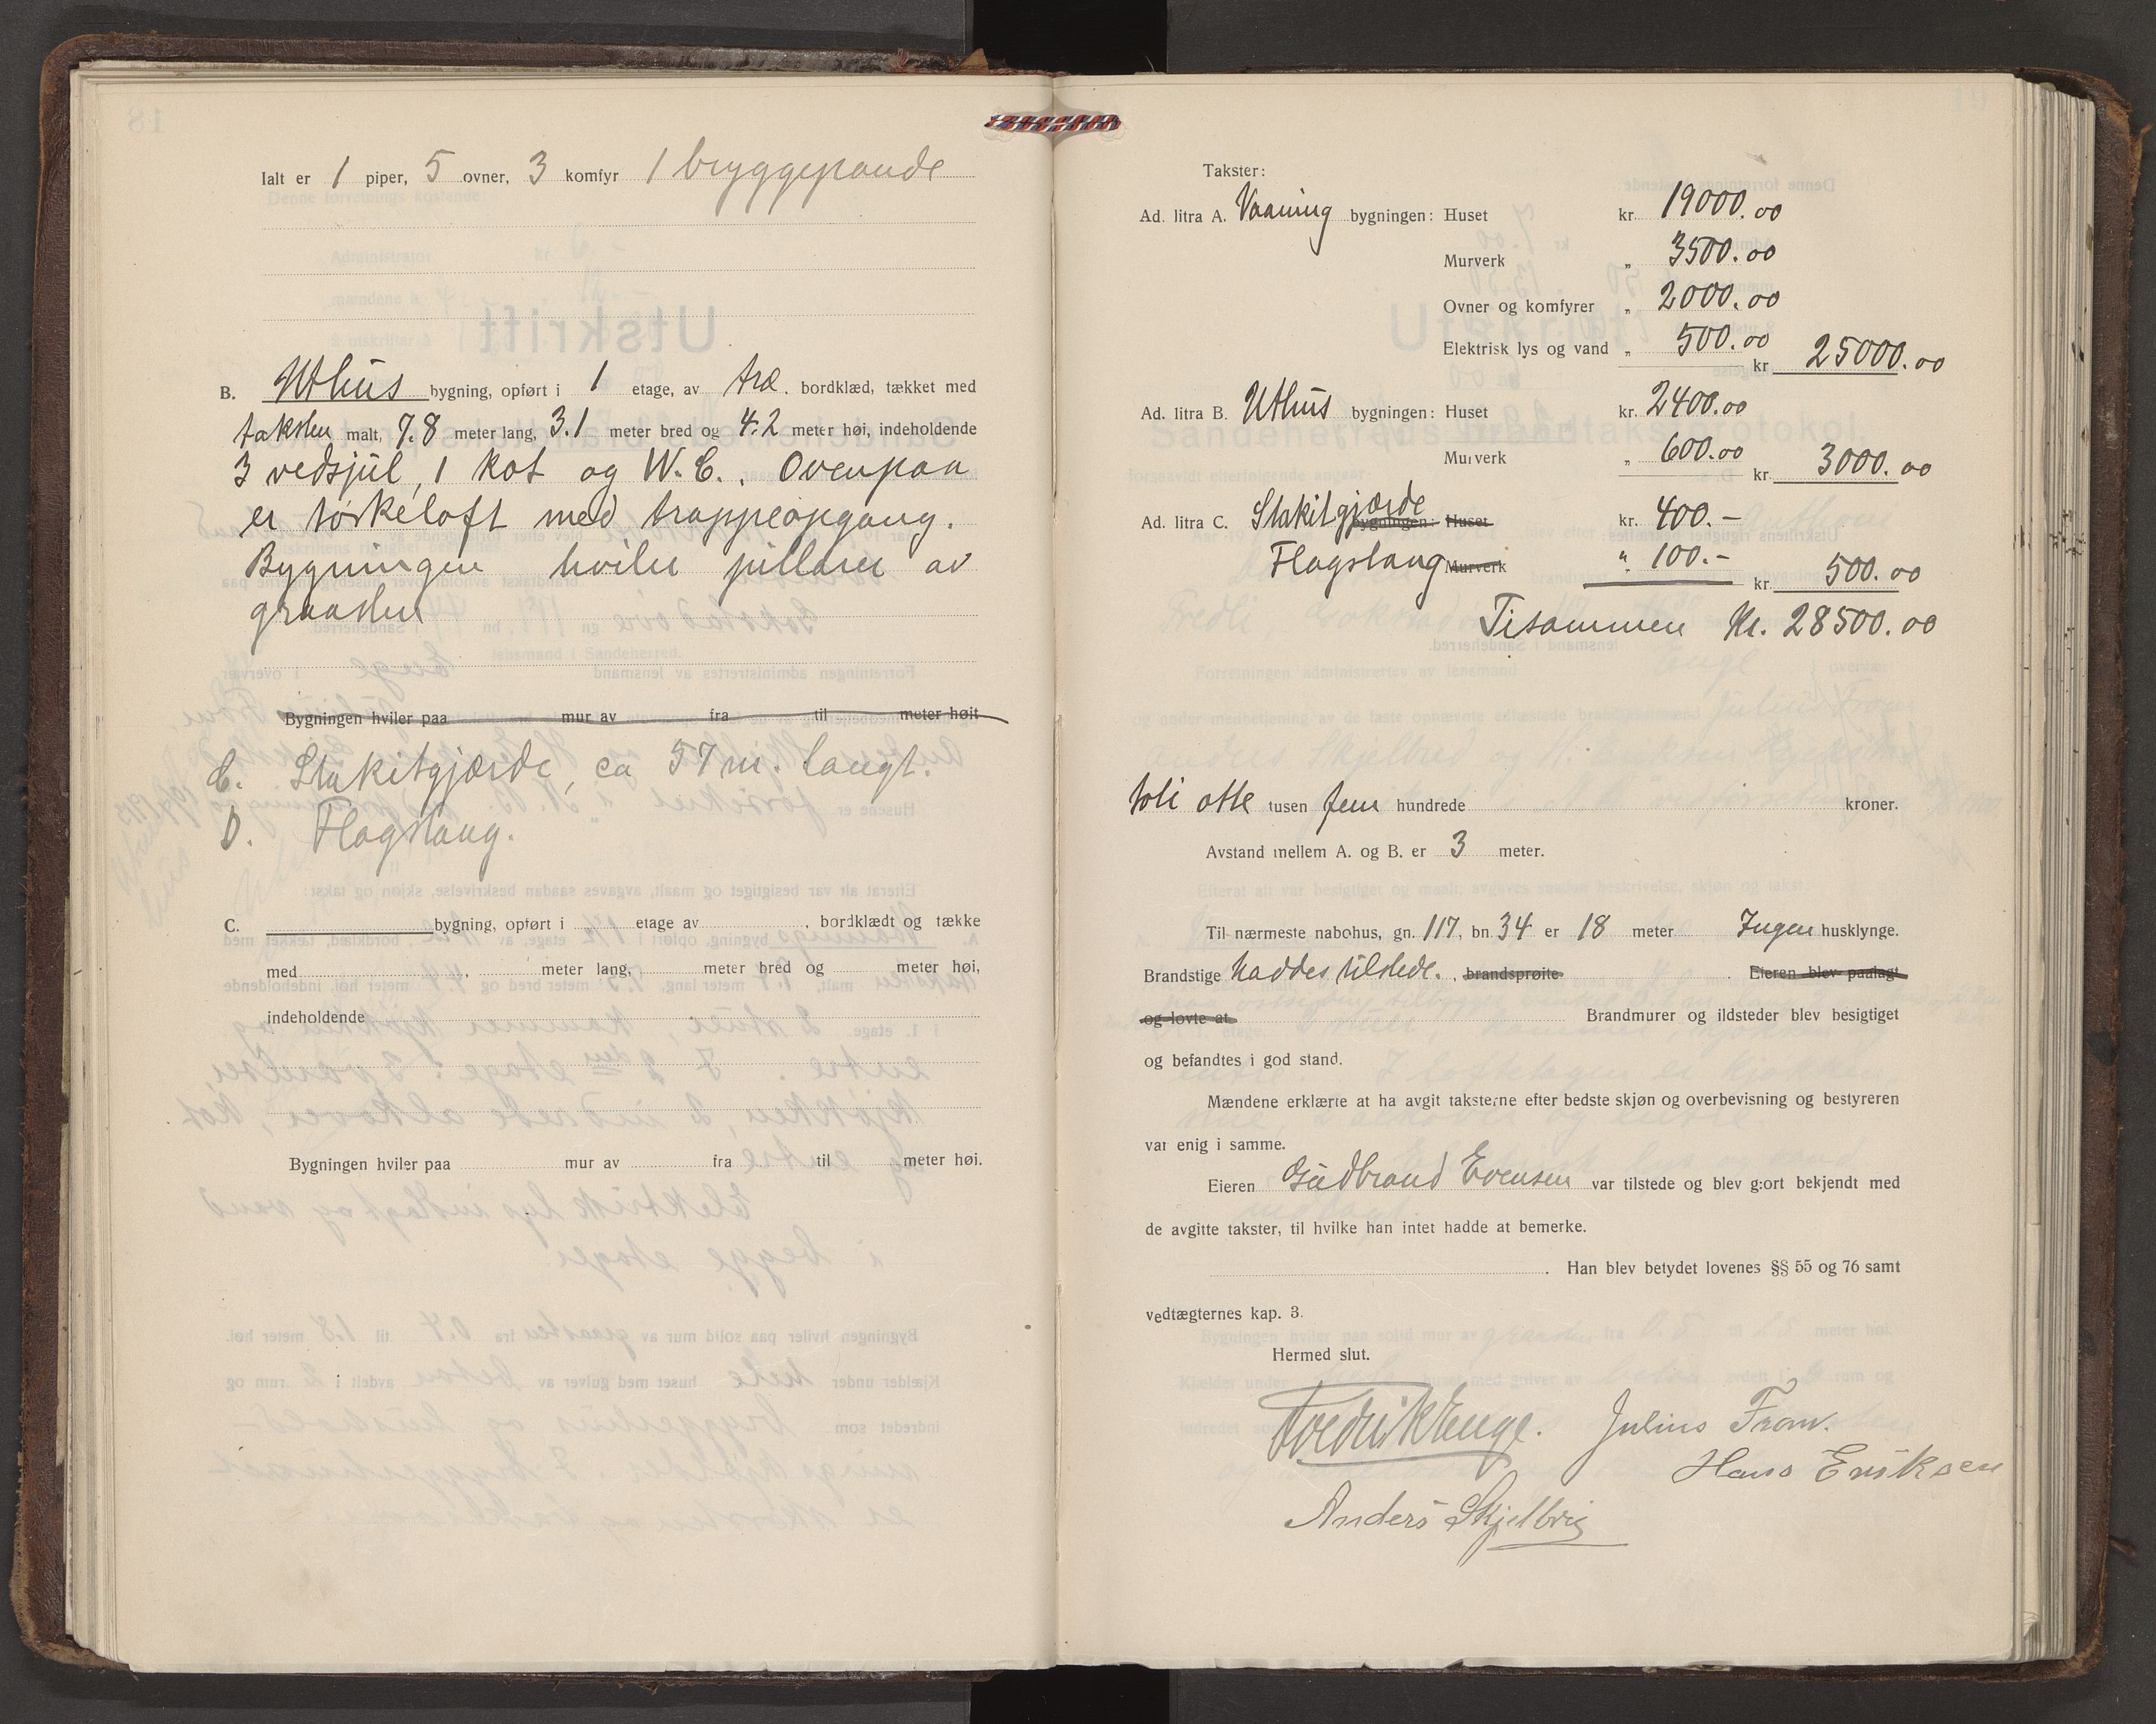 Ialt er 1 piper, 5 ovner, 3 komfyr 1 bryggepande
B. Uthus bygning, opført i 1 etage, av træ. bordklæd, tækket med
taksten malt, 7.8 meter lang, 3.1 meter bred og 4.2 meter høi, indeholdende
3 vedsjul, 1 kot og W.C.. Ovenpaa
er tørkeloft med trappeopgang.
Bygningen hviler pillarer av
graasten
Bygningen hviler paa mur av fra til meter høit
C. Stakitgjærde, ca 57 m. langt.
D. Flagstang.
C. bygning, opført i etage av , bordklædt og tække
med , meter lang, meter bred og meter høi,
indeholdende
Bygningen hviler paa mur av fra til meter høi.
Takster:
Ad. litra A. Vaaning bygningen: Huset kr. 19000.00
Murverk „ 3500.00
Ovner og komfyrer „ 2000.00
Elektrisk lys og vand „ 500.00
kr 25000.00
Ad. litra B. Uthus bygningen: Huset kr. 2400.00
Murverk „ 600.00
kr. 3000.00
Ad. litra C. Stakitgjærde bygningen: Huset kr. 400.-
Flagstang Murverk " 100.-
kr. 500.00
Tisammen Kr. 28500.00
otte tusen fem hundrede kroner.
Avstand mellem A. og B. er 3 meter.
Til nærmeste nabohus, gn. 117, bn. 34 er 18 meter Ingen husklynge.
Brandstige haddes tilstede. , brandsprøite . Eieren blev paalagt
og lovte at Brandmurer og ildsteder blev besigtiget
og befandtes i god stand.
Mændene erklærte at ha avgit taksterne efter bedste skjøn og overbevisning og bestyreren
var enig i samme.
Eieren Gudbrand Evensen var tilstede og blev gjort bekjendt med
de avgitte takster, til hvilke han intet hadde at bemerke.
. Han blev betydet lovenes §§ 55 og 76 samt
vedtægternes kap. 3.
Hermed slut.
Fredrik Enge. Julius Tram.
Hans Eriksen
Anders Skjelbrig